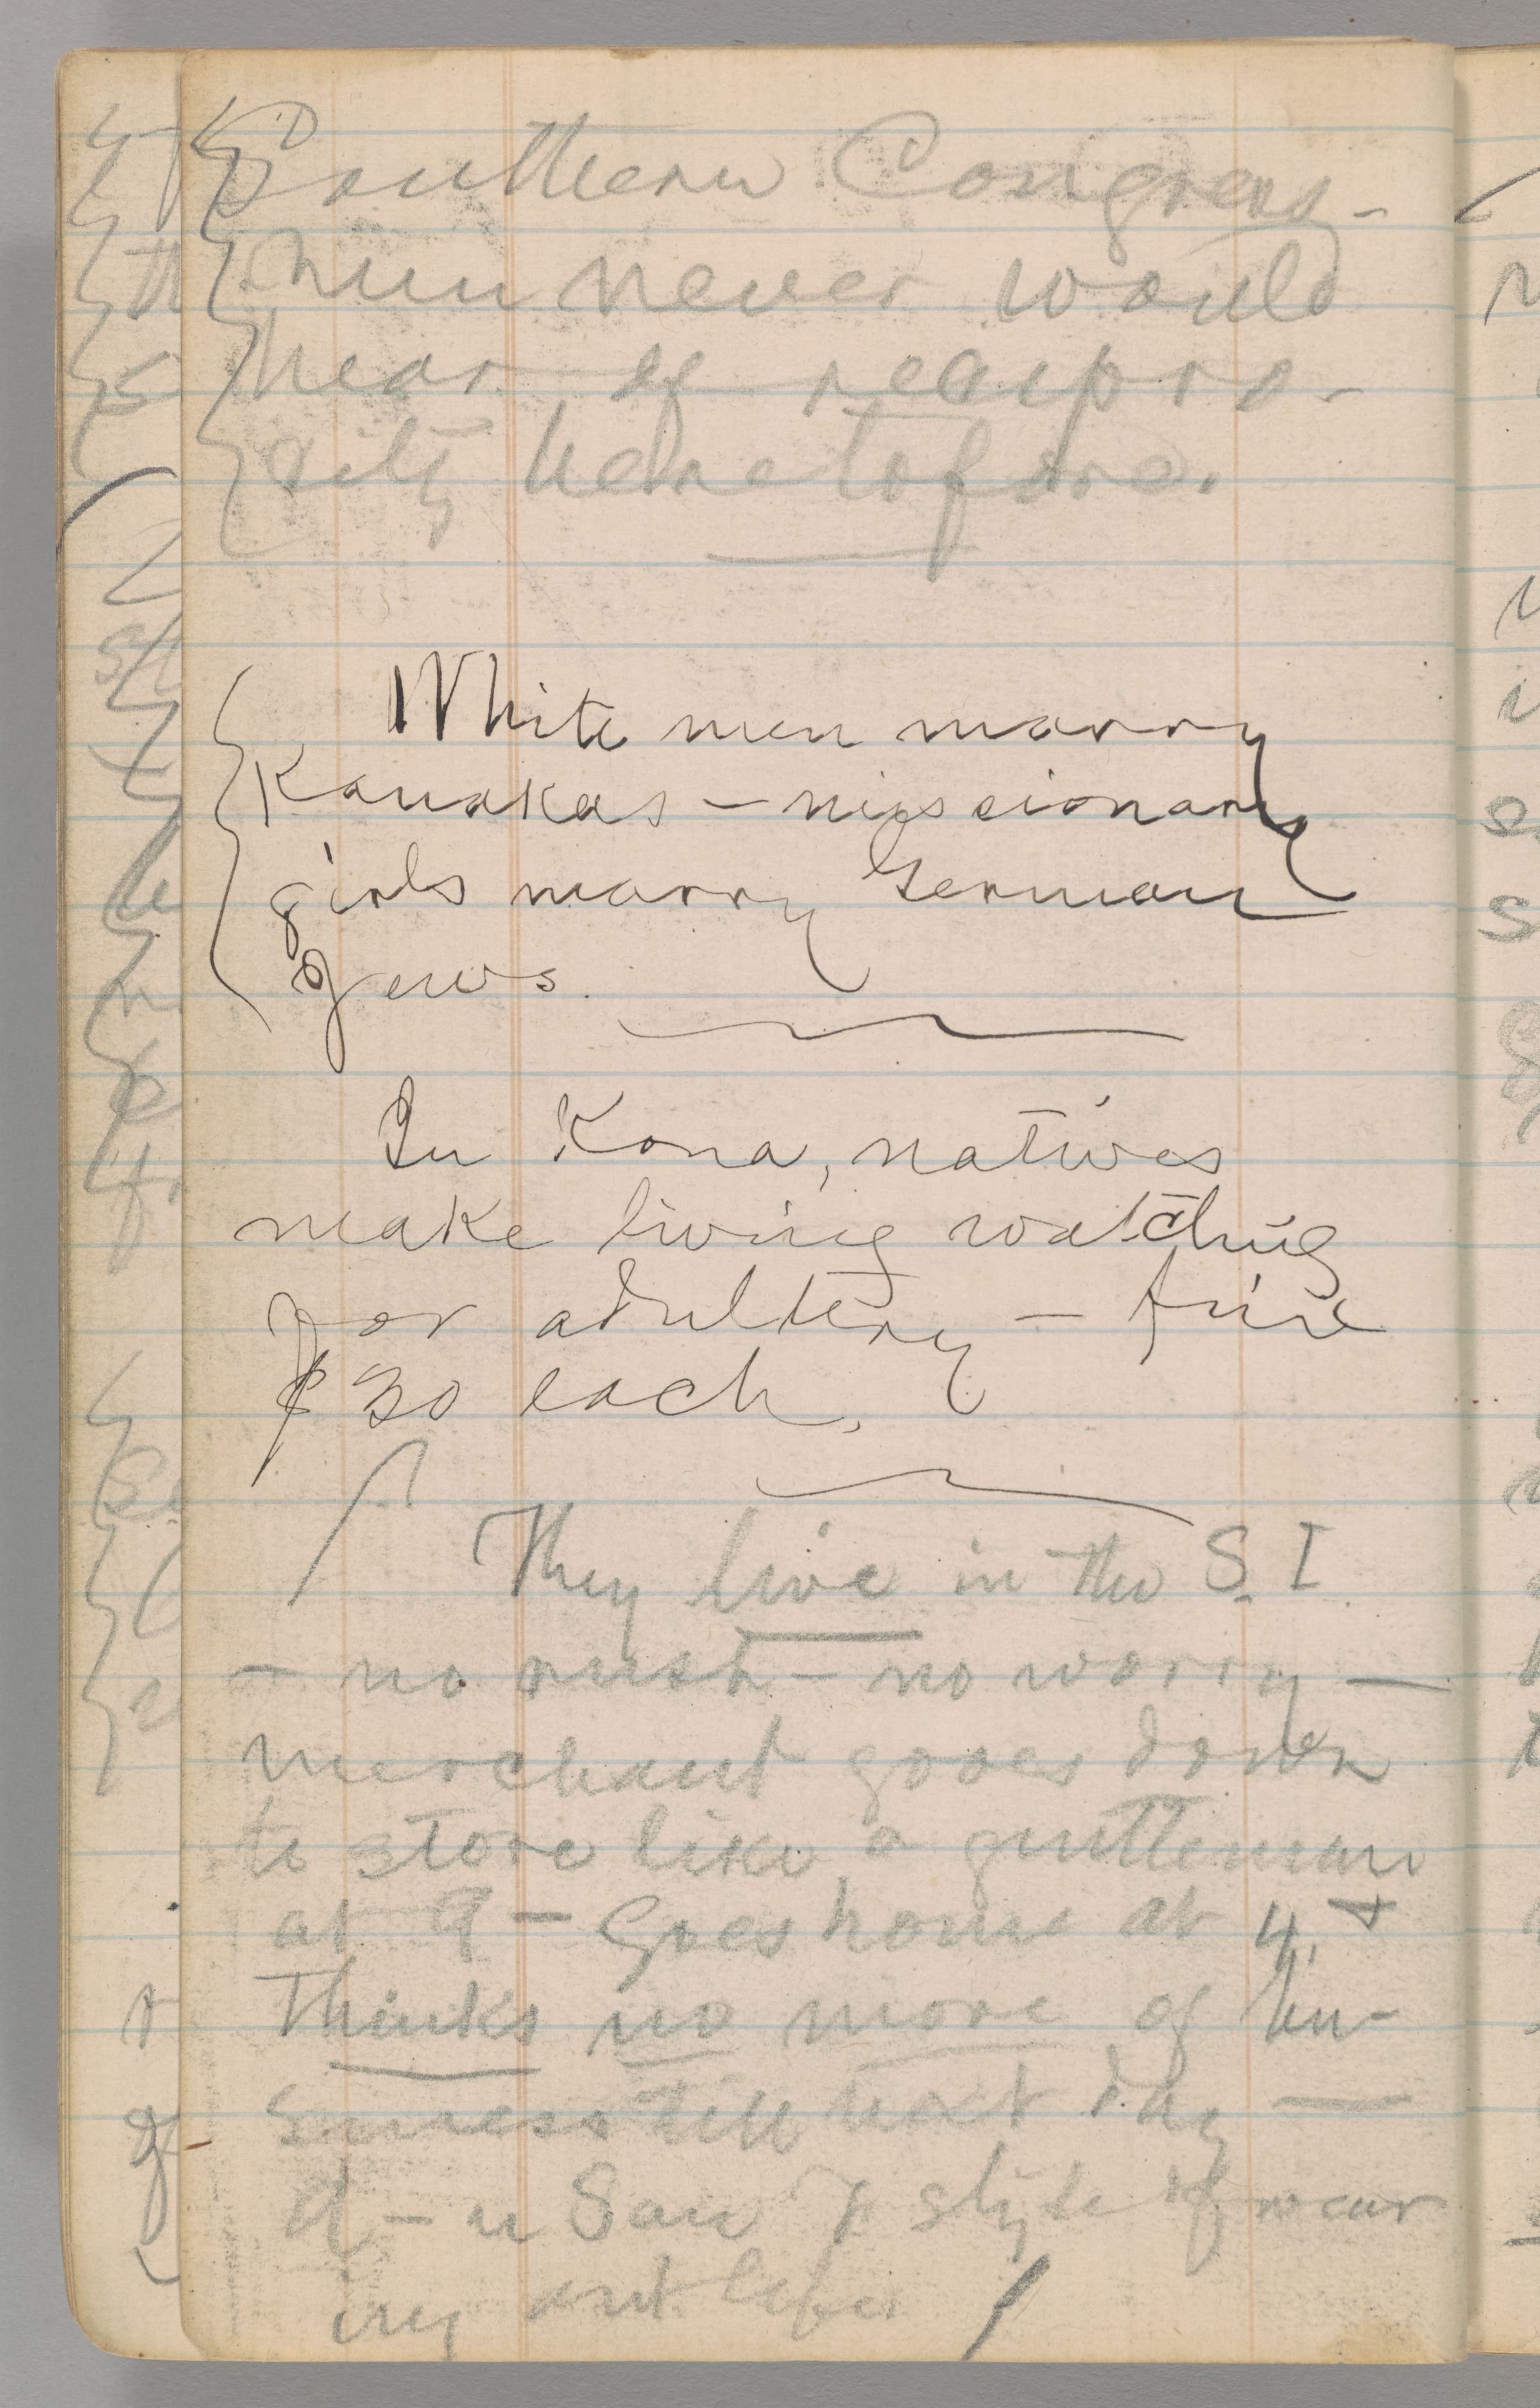 Southern Congress-
men never would
hear of recipro-
city heretofore.
White men marry
Kanakas – missionary
girls marry German
Jews.
In Kona, natives
make living watching
for adultery – fine
$30 each.
They live in the S. I
– no rush – no worry –
merchant goes down
to store like a gentleman
at 9 – Goes home at 4, &
Thinks no more of bu-
siness till next day –
d–n San F style of wear
ing out life.